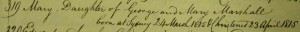 319 Mary. Daughter of George and Mary Marshall
born at Sydney 24 March 1815 Christened 23 April 1815